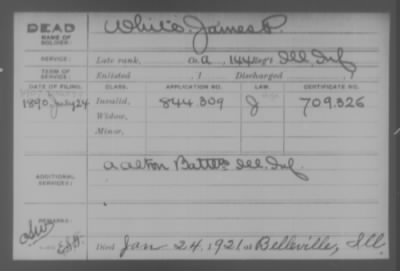 DEAD
NAME OF SOLDIER:
White, James P.
SERVICE:
Late rank, Co. A, 144 Reg't Ill. Inf.
TERM OF SERVICE:
Enlisted , 1 Discharged , 1
DATE OF FILING. CLASS. APPLICATION NO. LAW. CERTIFICATE NO.
1890, July 24 Invalid, 844.309 J 709.326
Widow,
Minor,
ADDITIONAL SERVICES:
A Alton Batt'n Ill. Inf.
REMARKS:
Died Jan 24, 1921 at Belleville, Ill